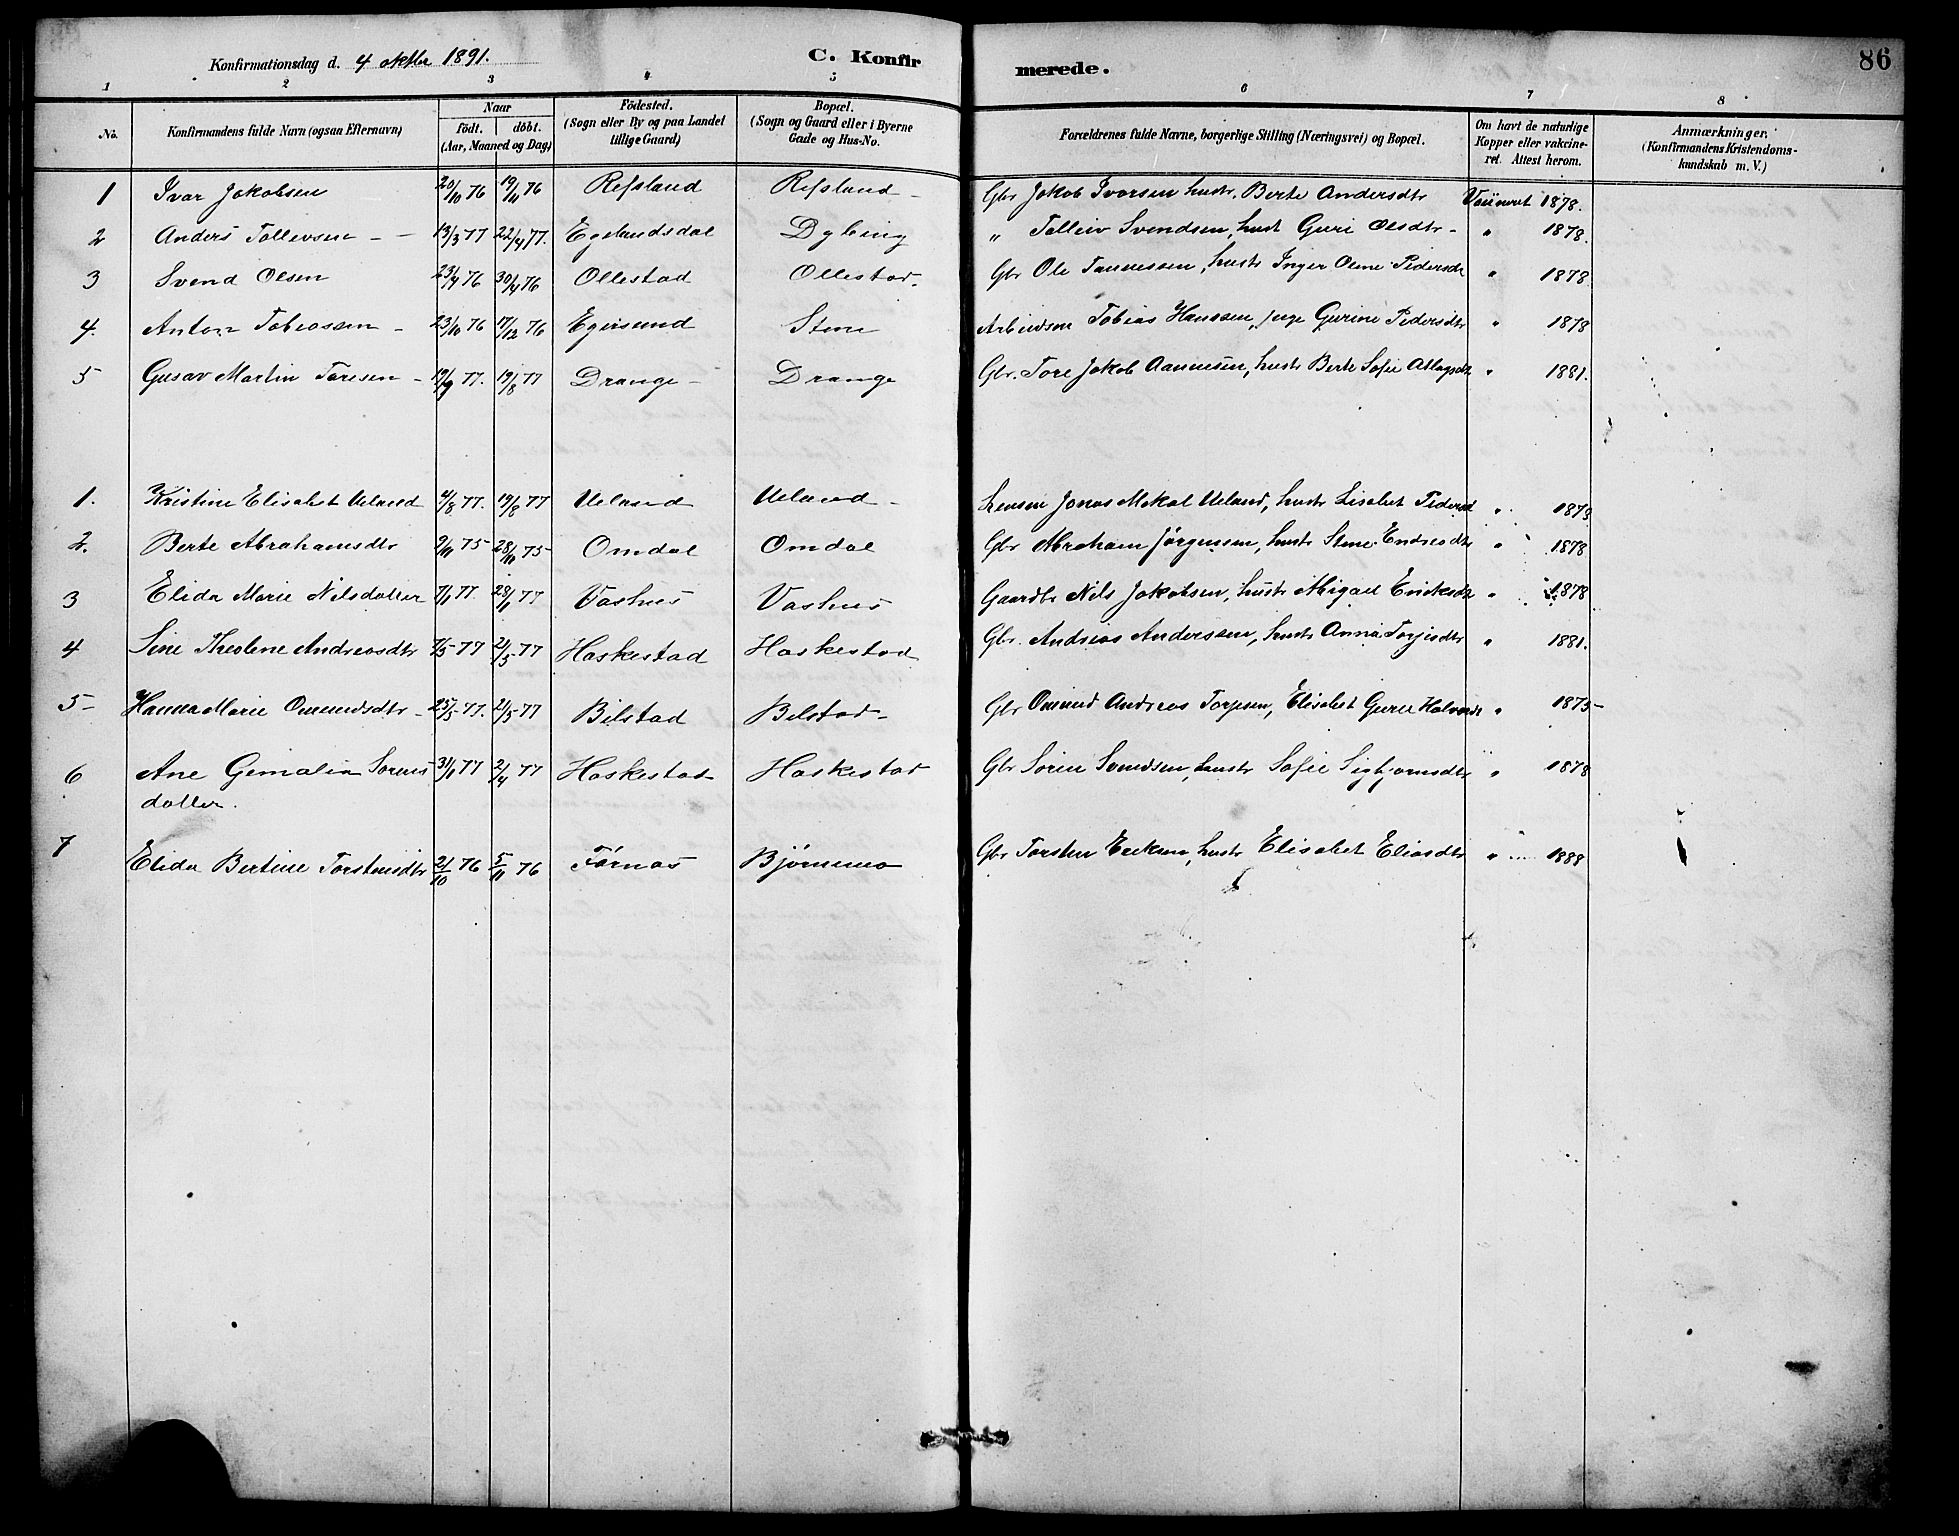 Konfirmationsdag d. 4 oktbr 1891.
C. Konfirmerede.
86
1 2 3 4 5 6 7 8
No. Konfirmandens fulde Navn (ogsaa Efternavn) Naar født. døbt. (Aar, Maaned og Dag) Födested. (Sogn eller By og paa Landet tillige Gaard) Bopæl. (Sogn og Gaard eller i Byerne Gade og Hus-No. Forældrenes fulde Navne, borgerlige Stilling (Næringsvei) og Bopæl. Om havt de naturlige Kopper eller vakcineret. Attest herom. Anmærkninger. (Konfirmandens Kristendomskundskab m. V.)
1 Ivar Jakobsen 20/10 76 19/11 76 Refsland Refsland Gbr Jakob Ivarsen hustr. Berte Andersdtr 1878.
2 Anders Tollevsen 13/3 77 22/4 77. Egelandsdal Dybing „ Tolleiv Svendsen, hust Guri Olsdtr " 1878.
3 Svend Olsen 23/4 76 30/4 76 Ollestad Ollestad. Gbr Ole Tannessen, hustr Inger Oline Pedersdt " 1878
4. Anton Tobiassen 23/10 76 17/12 76 Egersund Stene Tobias Hanssen, Gurine Pedersdtr " 1878
5 Gusav Martin Toresen 19/9 77. 19/8 77 Drange Drange Gbr. Tore Jakob Aanensen, hustr Berte Sofie " 1881.
1. Kristine Elisabet Ueland 4/8 77. 19/8 77 Ueland Ueland Jonas Mikal Ueland, hustr Lisabet " 1878
2. Berte Abrahamsdtr 9/11 75 28/11 75 Omdal Omdal Gbr Abraham Jørgensen, hustr Stine Endresdtr " 1878
3 Elida Marie Nilsdatter 7/1 77. 28/1 77 Vashus Vashus Gaardbr Nils Jakobsen, hustr Abigael Eriksdt " 1878
4 Sine Theoline Andreasdtr 7/5 77 21/5 77 Haskestad Haskestad Gbr. Andreas Anderssen, hustr Anna Torjisdtr " 1881.
5 Hanna Marie Omundsdtr 25/3 77. 21/5 77 Bilstad Bilstad Gbr Omund Andreas Elisabet Guria " 1875
6 Ane Gemalia Sorens 31/1 77 2/4 77 Haskestad Haskestad Gbr Sören Svendsen, hustr Sofie Sigbjørnsdtr " 1878
datter.
7 Elida Bertine Torstensdtr 21/10 76 5/11 76 Førnas Bjørnemo Gbr Torsten Eriksen, hustr Elisabet Eliasdtr " 1888